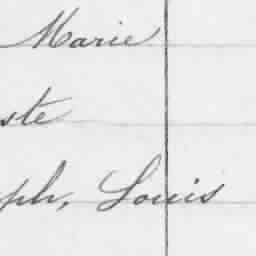 Marie
ste
ph, Louis